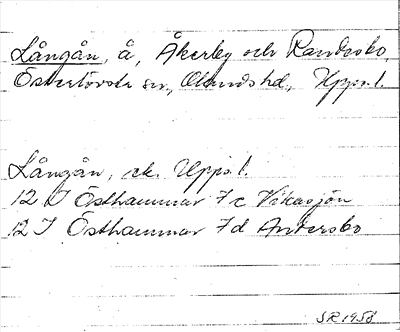 Långån, å, Åkerby och Randesbo,
Österlövsta sn., Olands hd., Upps. l.
Långån, ek. Upps. l.
12 I Östhammar 7 c Vikasjön
12 I Östhammar 7 d Andersbo
SR 1958